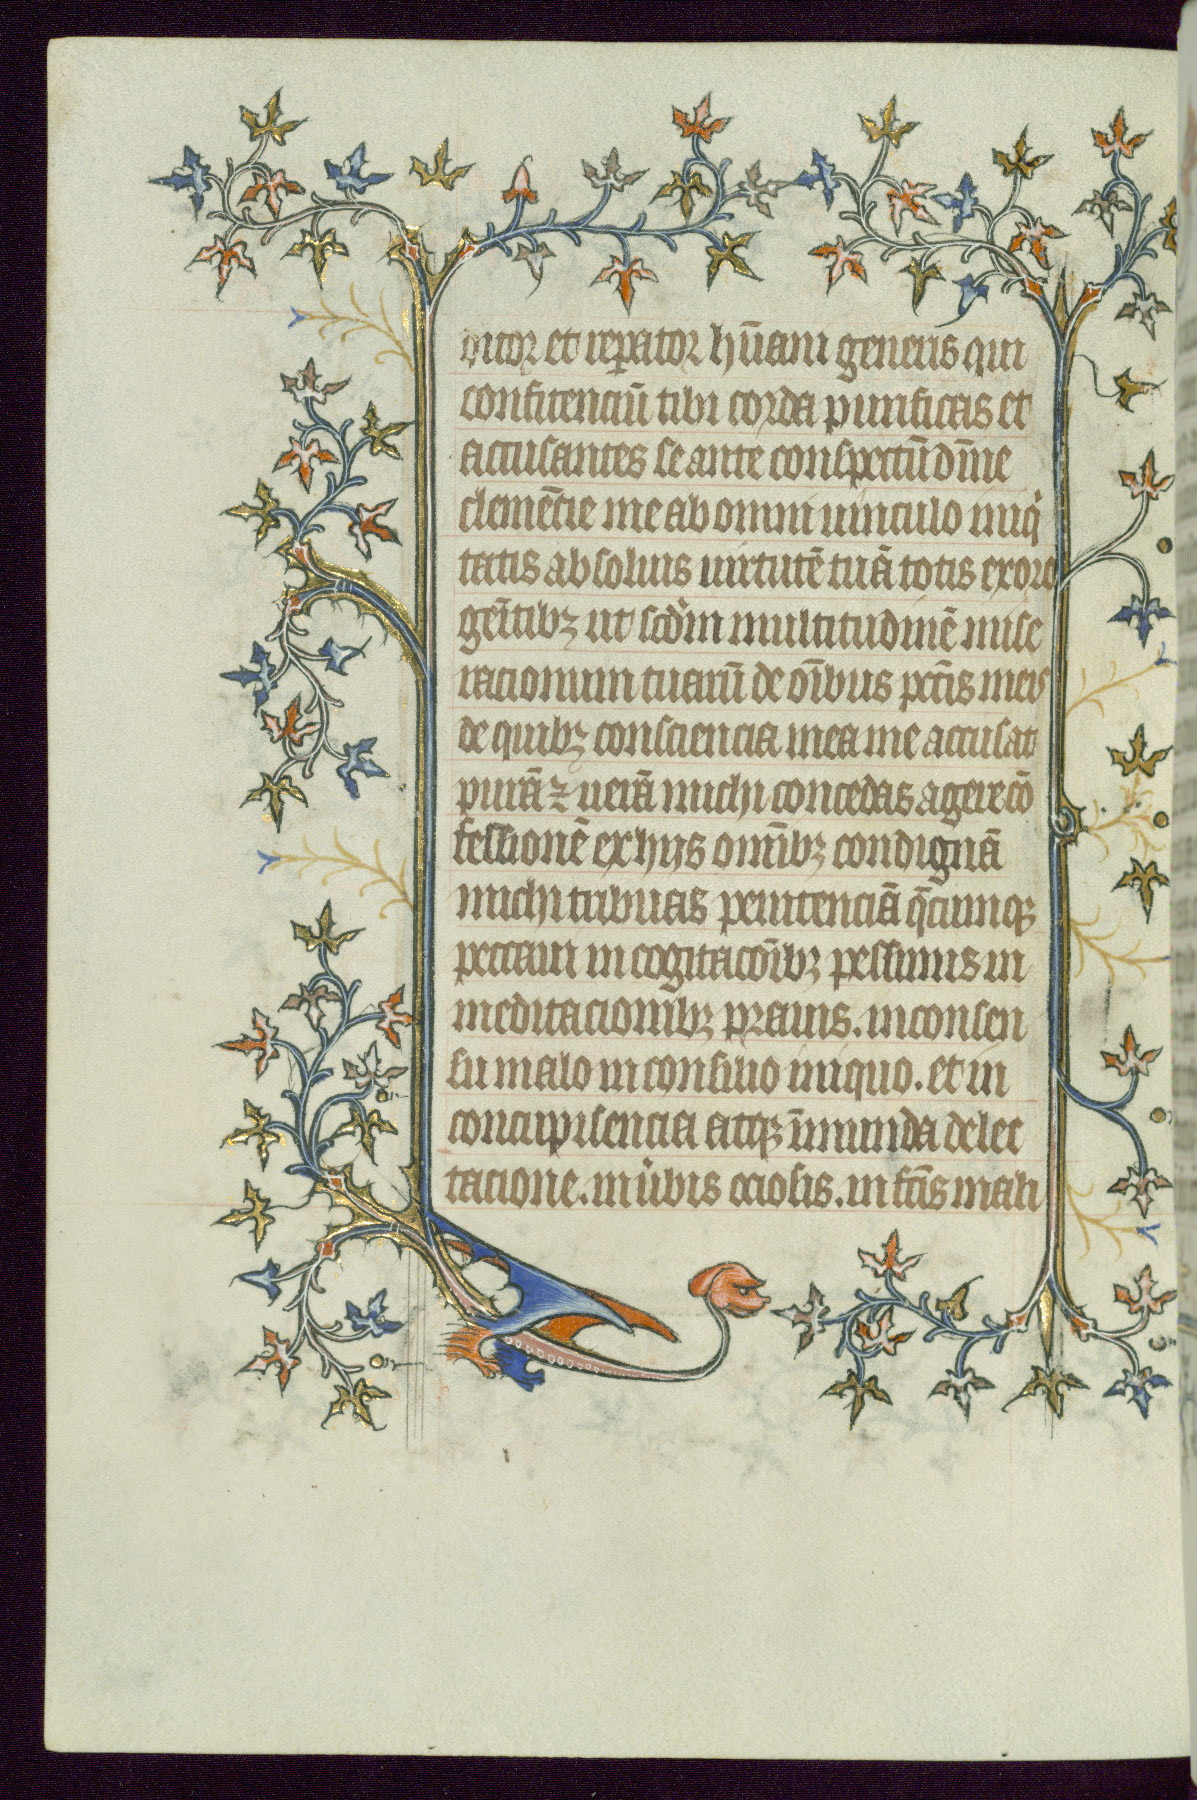 ditor et repator hūani generis qui
confitenciū tibi corda purificas et
accusantes se ante conspectū diuine
clemētie me ab omni uinculo iniq
tatis absoluis uirtutē tuā totis exoro
gētibꝫ ut scdm multitudinē mise
racionum tuarū de oībus pctis meis
de quibꝫ consciencia mea me accusat
purā ⁊ uerā michi concedas agere cō
fessionē ex hiis omībꝫ condignā
michi tribuas penitenciā q̄cumqꝫ
peccaui in cogitacōibꝫ pessimis in
meditacionibꝫ prauis. in consen
su malo in consilio iniquo. et in
concupisencia atqꝫ īmunda delec
tacione. in ūbis ociosis. in fc̄is mali